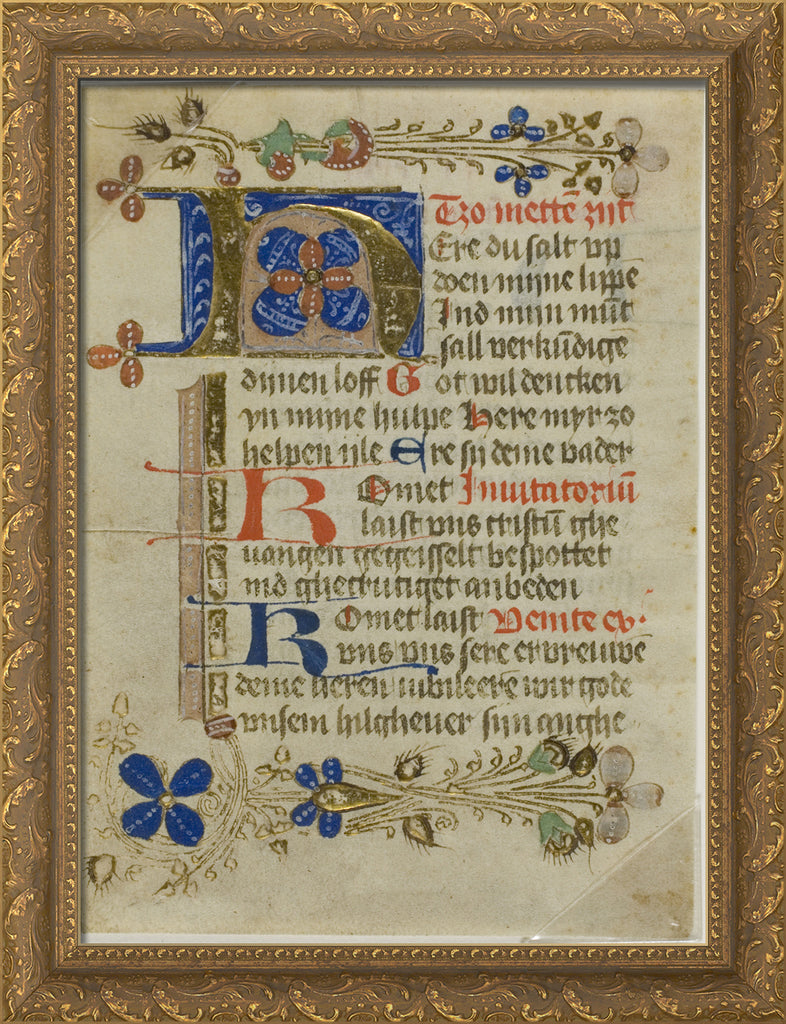 Tzo mettē zijt
HEre du salt vp
doen mijne lippe
Ind mijn mūt
sall verkūdigē
dijnen loff Got wil dencken
yn mijne hulpe Here myr zo
helpen ijle Ere sy deme vader
Komet Inuitatoriū
laist vns cristū ghe
uangen gegeisselt bespottet
ind ghecrutiget anbeden
Komet laist Venite ex
vns vns sere ervreuwē
deme heren iubileere wir gode
vnsem hilgheuer sijn anghe